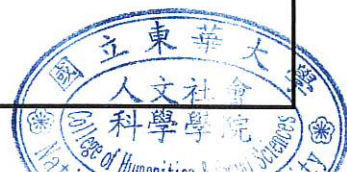 國立東華大學
人文社會
科學學院
College of Humanities & Social Sciences